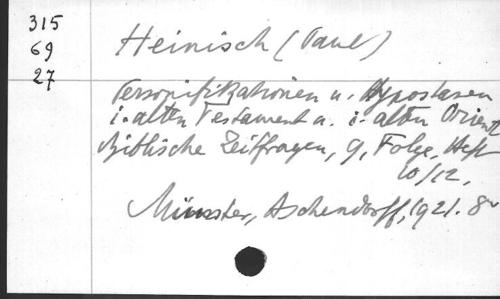 315
69
27
Heinisch (Paul)
Personifikationen u. Hypostasen
i. alten Testament u. i. alten Orient
Biblische Zeitfragen, 9, Folge, Heft
10/12,
Münster, Aschendorff, 1921. 8°